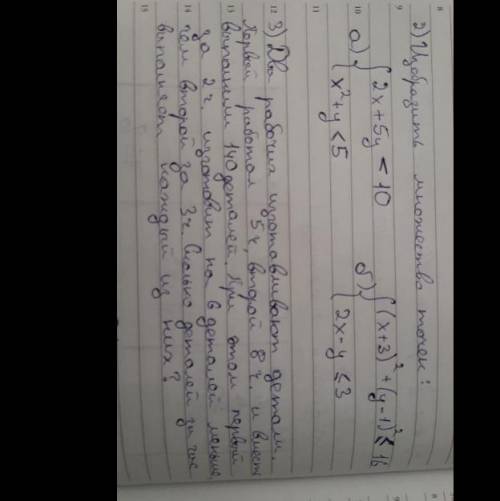 2) Изобразить множество точек:
а) { 2x + 5y < 10
x² + y < 5
б) { (x+3)² + (y-1)² ≤ 16
2x - y ≤ 3
3) Два рабочих изготавливают детали.
Первый работал 5ч, второй 8ч. и вместе
выполнили 140 деталей. При этом первый
за 2ч. изготовит на 6 деталей меньше,
чем второй за 3ч. Сколько деталей за час
выполняет каждый из них?
8
9
10
11
12
13
14
15